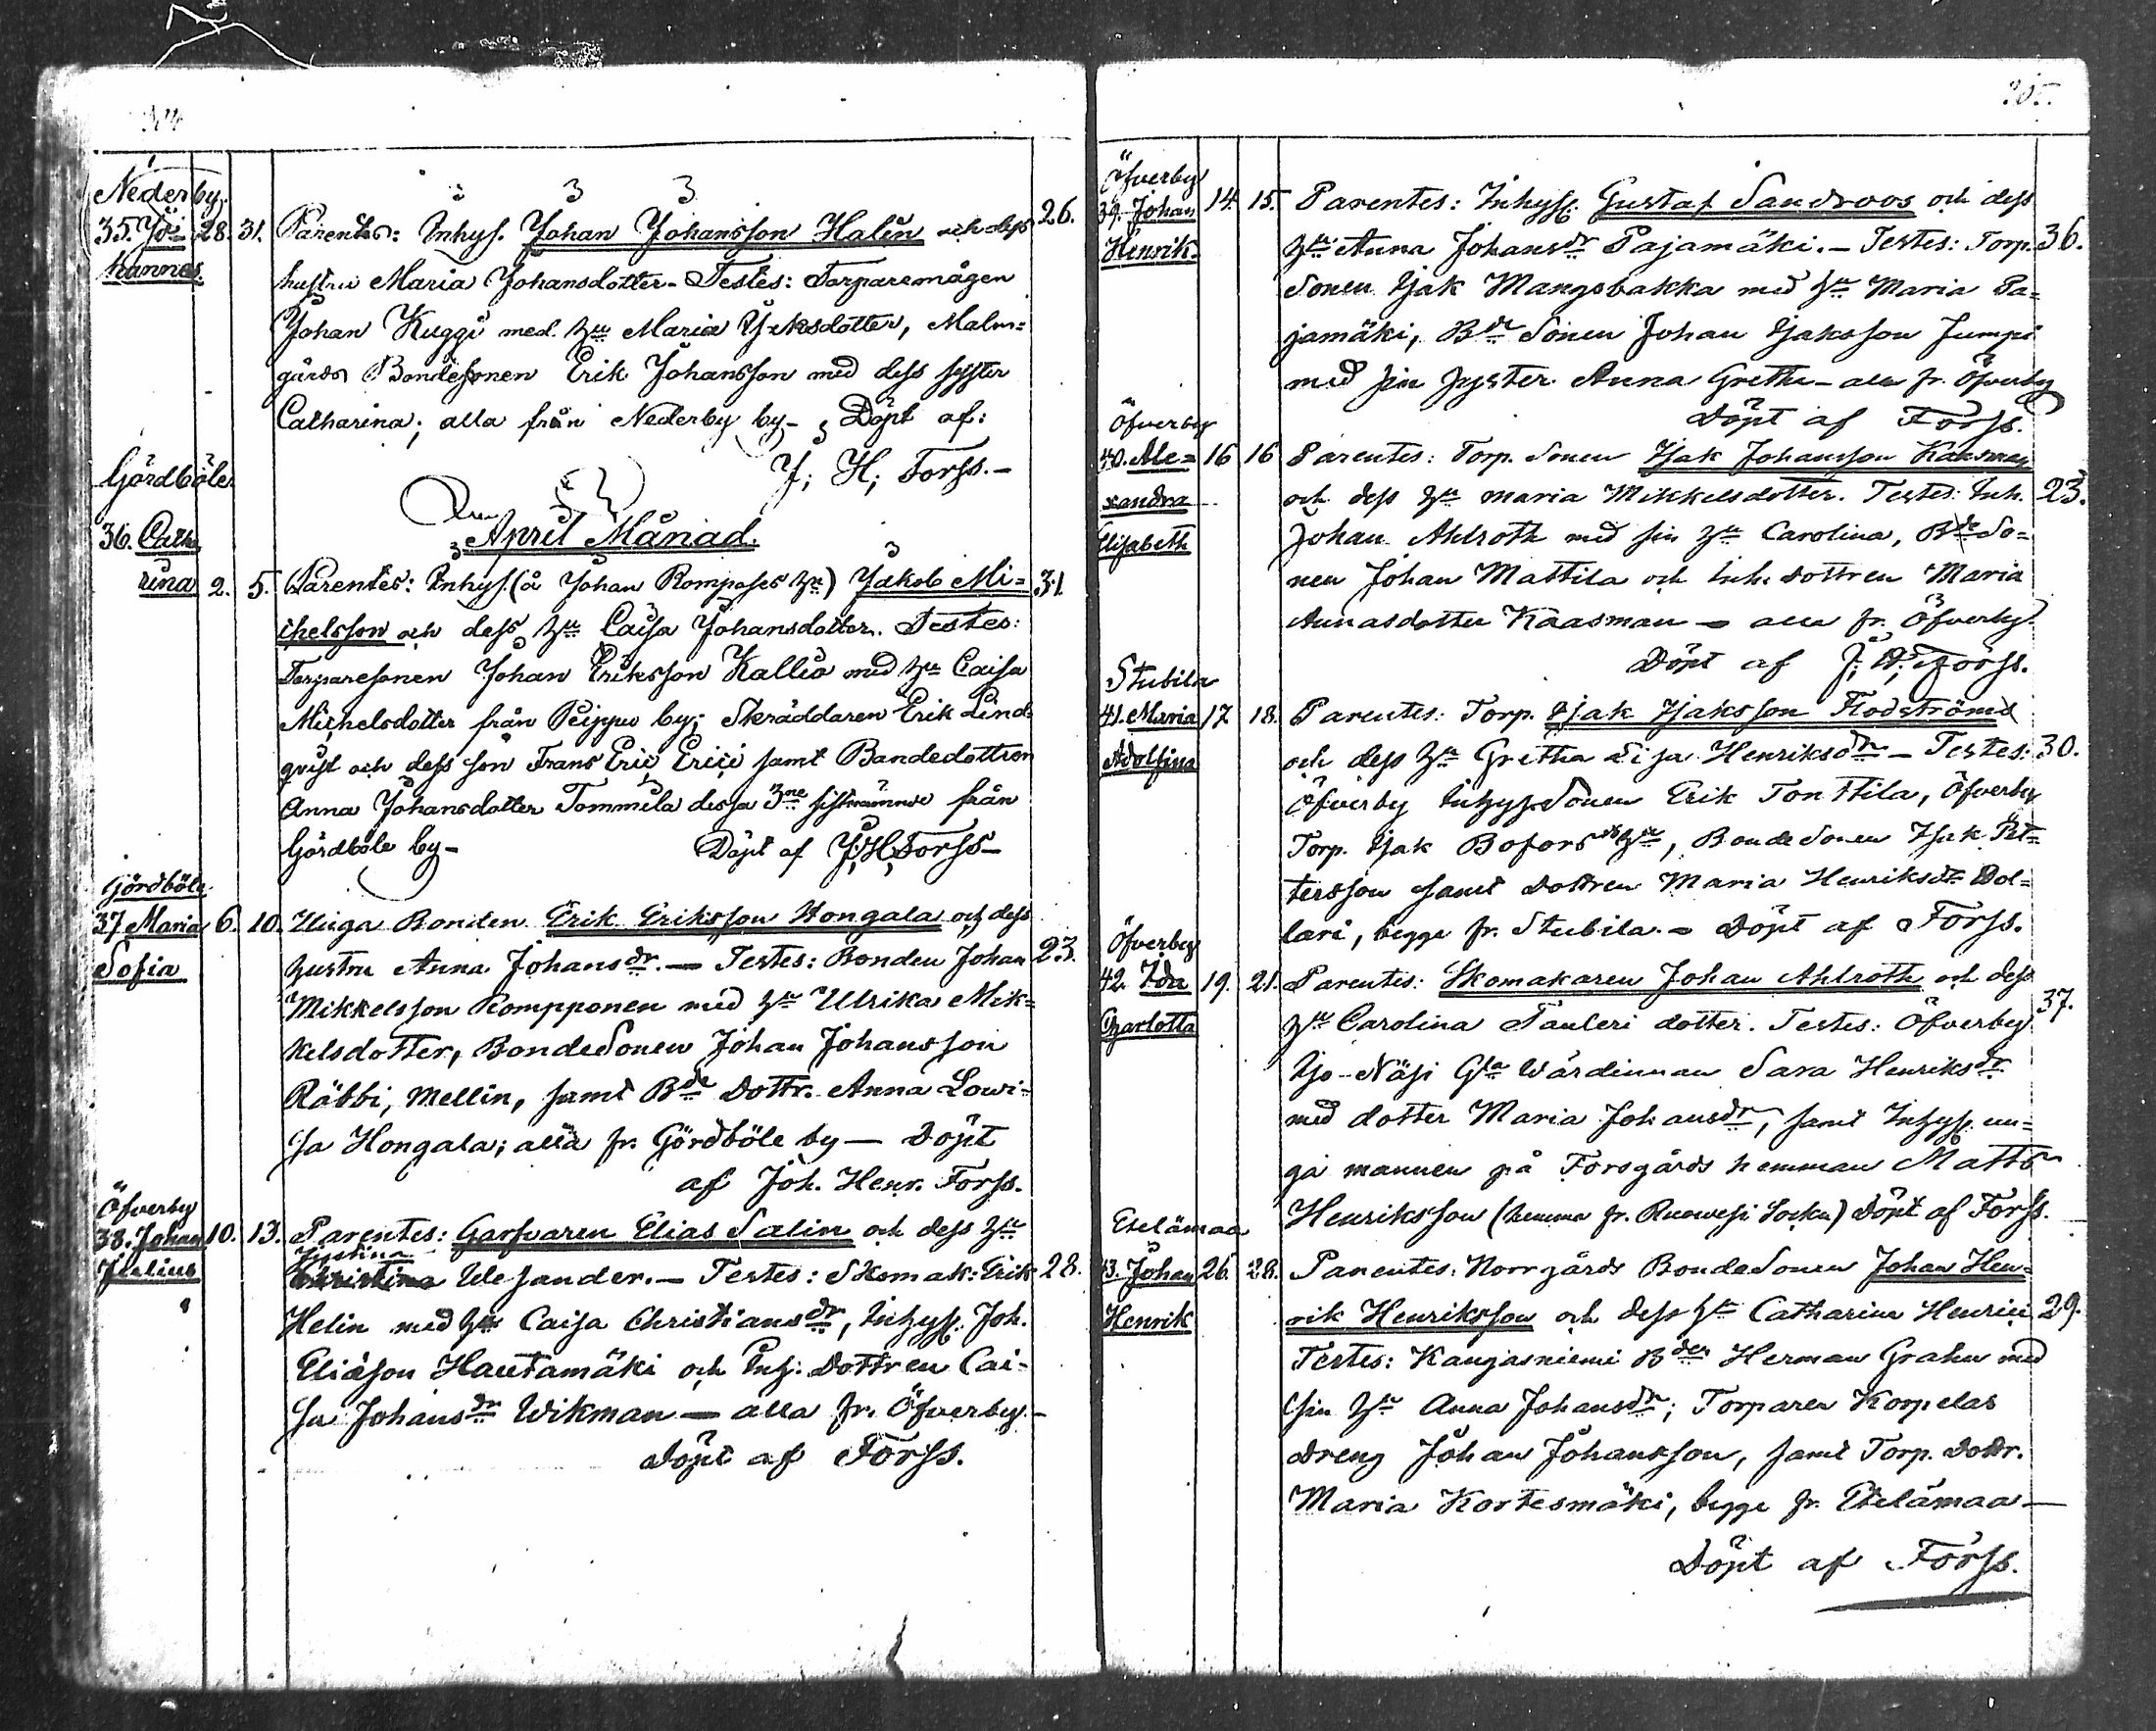 Nederby
35. Jo- 28. 31. Parentes: Inhys. Johan Johansson Halin och dess 26.
hannes. hustru Maria Johansdotter - Testes: Torparemågen
Johan Kuggi med Hu Maria Isaksdotter, Malm=
gårds Bondesonen Erik Johansson med dess syster
Catharina; alla från Nederby by - Döpt af:
J; H; Forss. -
Gördböle
April Månad.
36. Catha
rina 2. 5. Parentes: Inhys. (å Johan Rompases) Jakob Mi= 31.
chelsson och dess Hu Caisa Johansdotter. Testes:
Torparesonen Johan Eriksson Kallio med Hu Caisa
Michelsdotter från Peippu by; Skräddaren Erik Lind-
qvist och dess son Frans Eric Erici samt Bondedottren
Anna Johansdotter Tommila dessa 3ne sistnämnde från
Gördböle by - Döpt af J; H; Forss -
Gördböle
37 Maria 6. 10. Unga Bonden Erik Eriksson Hongala och dess
Sofia hustru Anna Johansdr. — Testes: Bonden Johan 23.
Mikkelsson Rompponen med Hu Ulrika Mik=
kelsdotter, BondeSonen Johan Johansson
Räbbi, Mellin, samt Bde Dottr. Anna Lowi=
sa Hongala; alla fr. Gördböle by — Döpt
af Joh. Henr. Forss.
Öfverby
38. Johan 10. 13. Parentes: Garfvaren Elias Salin och dess Hu
Justina
Julius Christina Wesander. — Testes: Skomak: Erik 28.
Helin med Hu Caisa Christiansdr, Inhys. Joh.
Eliason Hautamäki och Inh: Dottren Cai-
sa Johansdr Wikman — alla fr. Öfverby. -
Döpt af Forss.
305.
Öfverby
39. Johan 14. 15. Parentes: Inhys. Gustaf Sandroos och dess
Henrik. Hu Anna Johansdr Pajamäki. - Testes: Torp. 36.
Sonen Isak Mangsbakka med Hu Maria Pa=
jamäki, Bde Sonen Johan Isaksson Jumpi
med sin syster Anna Gretha - alla fr. Öfverby
Döpt af Forss.
Öfverby
40. Ale= 16 16 Parentes: Torp. Sonen Isak Johansson Kaasman
xandra och dess Hu Maria Mikkelsdotter. Testes: Inh. 23.
Elisabeth Johan Ahlroth med sin Hu Carolina, Bde So=
nen Johan Mattila och Inh. dottren Maria
Annasdotter Kaasman — alla fr. Öfverby.
Döpt af J; H; Forss.
Stubila
41. Maria 17 18. Parentes: Torp. Isak Isaksson Flodström
Adolfina och dess Hu Gretha Lisa Henriksdr — Testes: 30.
Öfverby Inhys. Sonen Erik Tonttila, Öfverby
Torp. Isak Bofors Hu, BondeSonen Isak Pet=
tersson samt Dottren Maria Henriksdr Dol=
lari, begge fr. Stubila. - Döpt af Forss.
Öfverby
42. Ida 19. 21. Parentes: Skomakaren Johan Ahlroth och dess
Charlotta Hu Carolina Tauleri dotter. Testes: Öfverby 37.
Yjo-Näsi Gla Wärdinnan Sara Henriksdr
med dotter Maria Johansdr, samt Inhys. un=
ga mannen på Forsgårds hemman Matts
Henriksson (hemma fr. Ruowesi Socken) Döpt af Forss.
Etelämaa
43. Johan 26. 28. Parentes: Norrgårds BondeSonen Johan Hen=
Henrik rik Henriksson och dess Hu Catharina Henrici 29.
Testes: Kangasniemi Bden Herman Grahn med
sin Hu Anna Johansdr; Torparen Korpelas
Dreng Johan Johansson, samt Torp. Dottr.
Maria Kortesmäki, begge fr. Etelämaa —
Döpt af Forss.